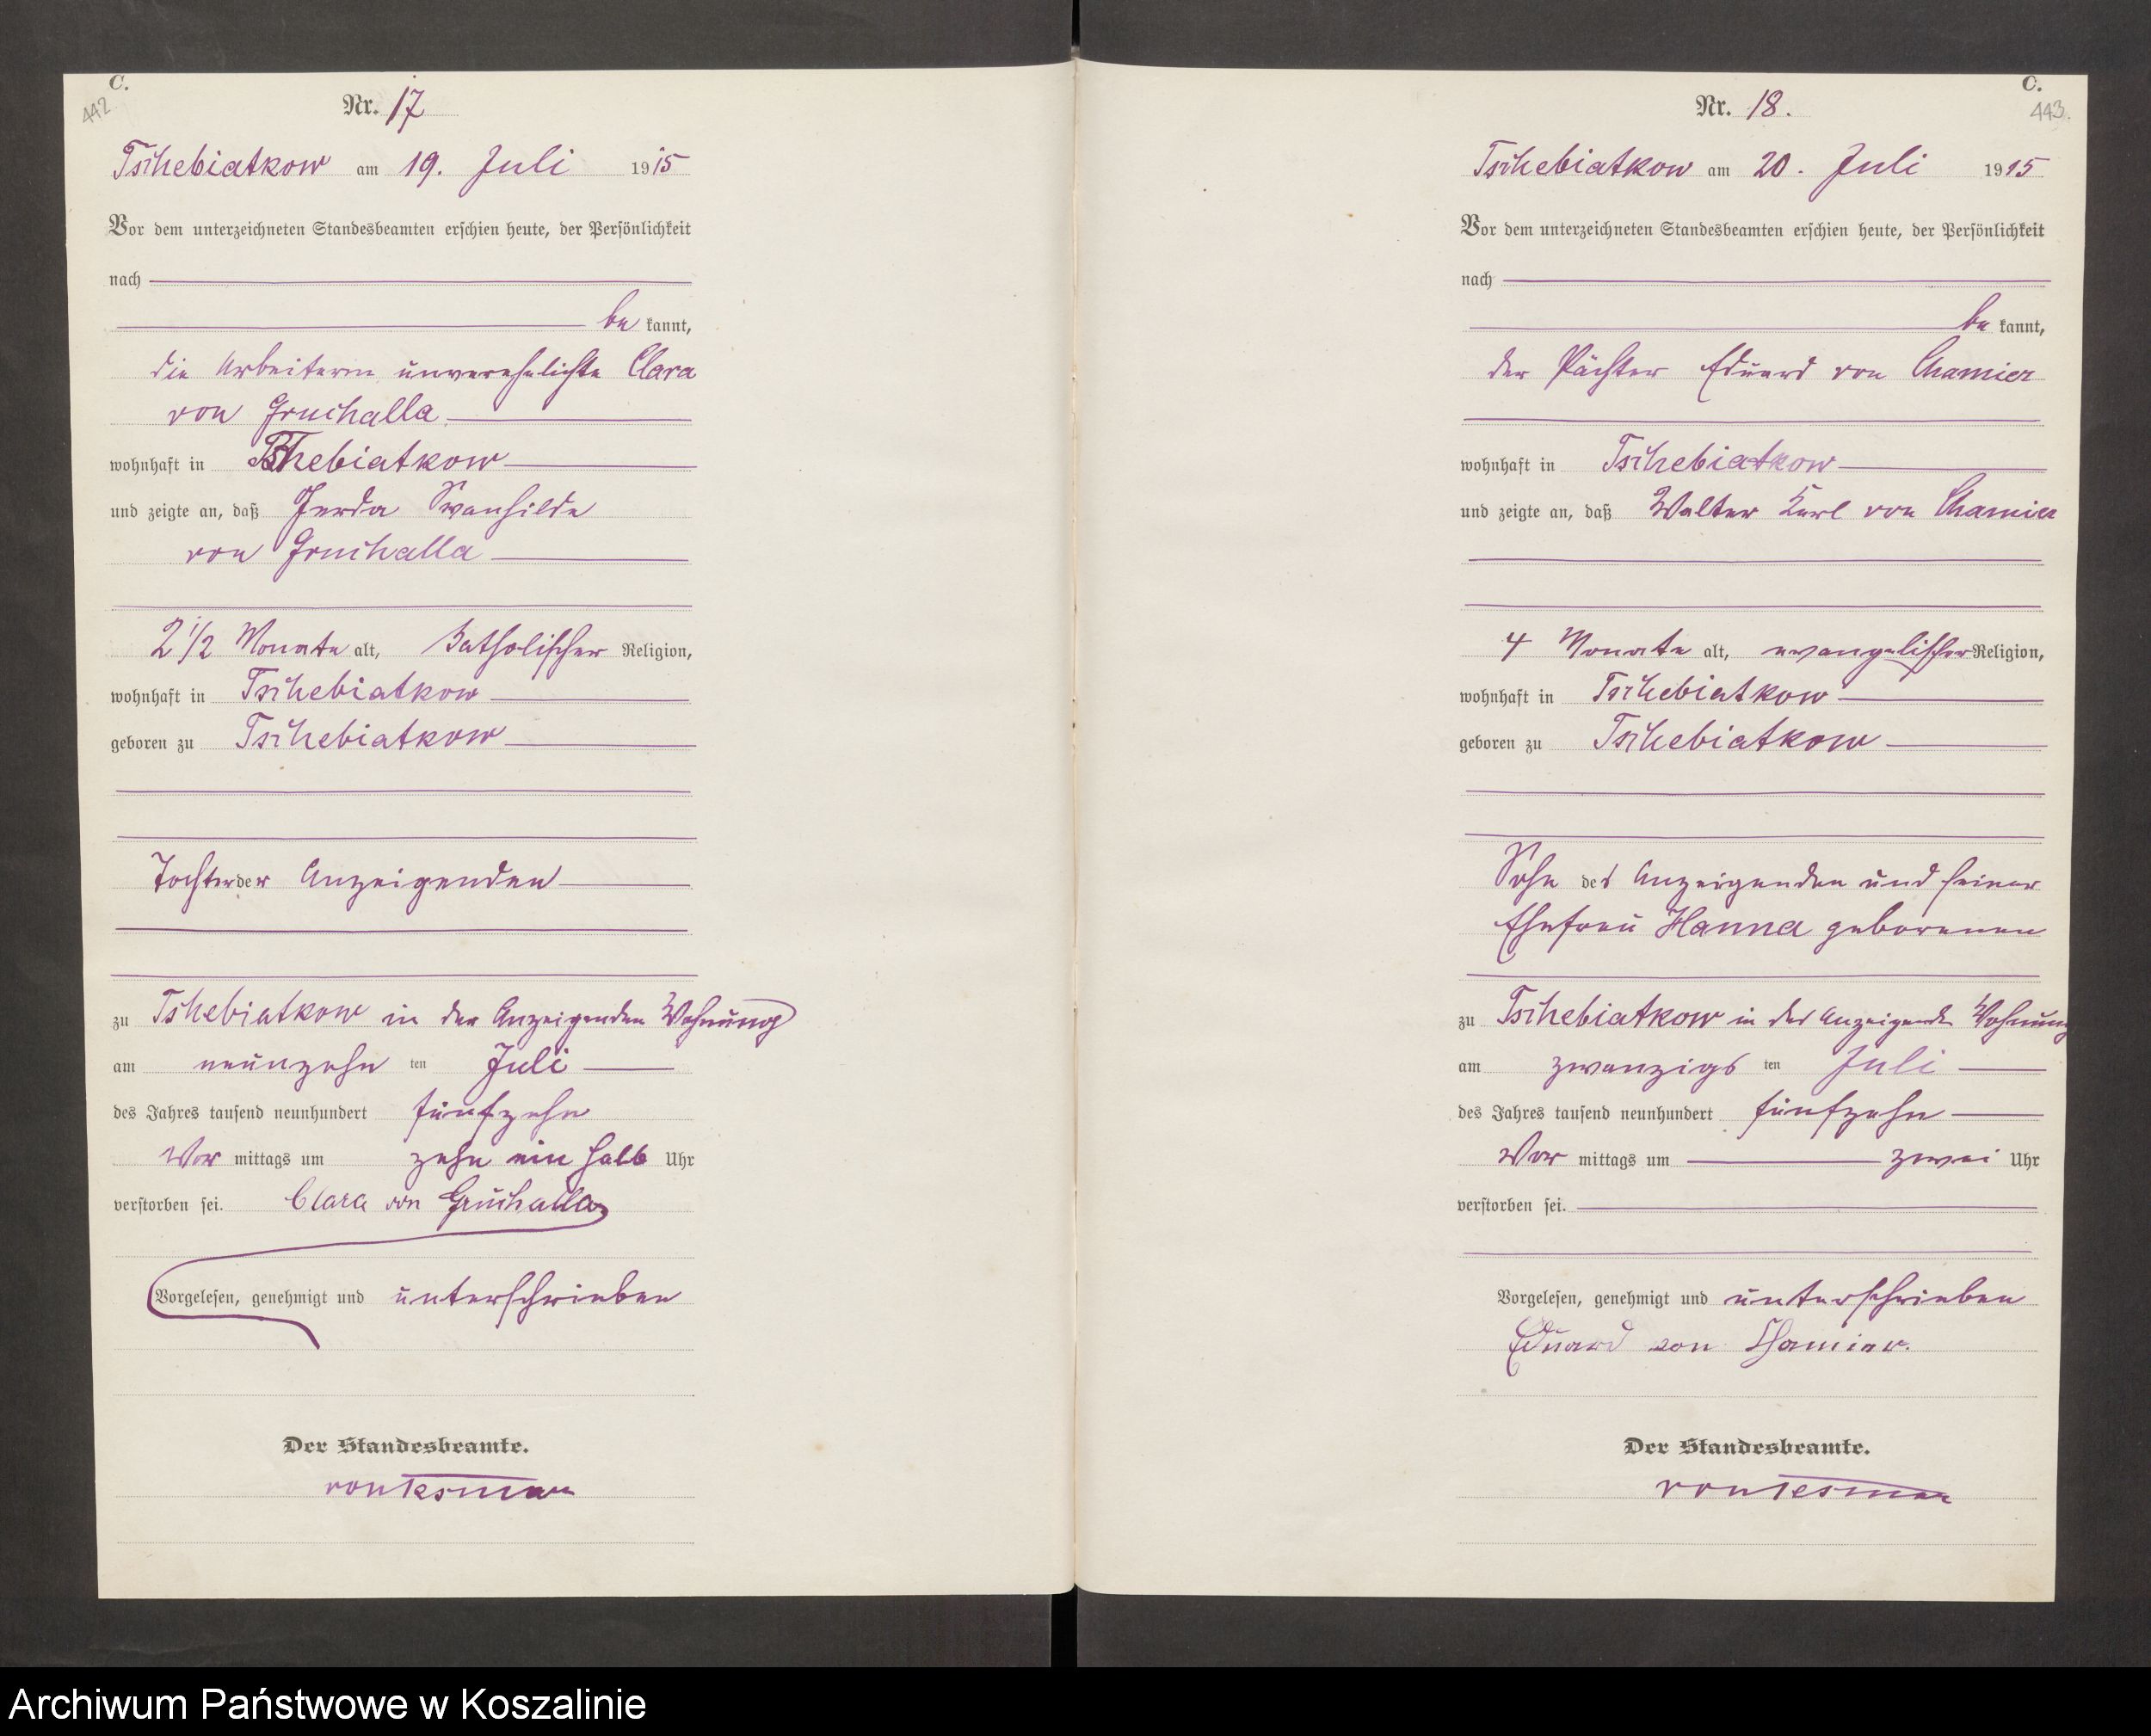 C.
442
Nr. 17
Tschebiatkow am 19. Juli 1915
Vor dem unterzeichneten Standesbeamten erschien heute, der Persönlichkeit
nach
be kannt,
die Arbeiterin unverehelichte Clara
von Gruchalla
wohnhaft in Tschebiatkow
und zeigte an, daß Gerda Swanhilde
von Gruchalla
2 1/2 Monate alt, katholischer Religion,
wohnhaft in Tschebiatkow
geboren zu Tschebiatkow
Tochter der Anzeigenden
zu Tschebiatkow in der Anzeigenden Wohnung
am neunzehn ten Juli
des Jahres tausend neunhundert fünfzehn
Vor mittags um zehn ein halb Uhr
verstorben sei. Clara von Gruchalla
Vorgelesen, genehmigt und unterschrieben
Der Standesbeamte.
C.
443.
Nr. 18.
Tschebiatkow am 20. Juli 1915
Vor dem unterzeichneten Standesbeamten erschien heute, der Persönlichkeit
nach
be kannt,
der Pächter Eduard von Chamier
wohnhaft in Tschebiatkow
und zeigte an, daß Walter Karl von Chamier
4 Monate alt, evangelischer Religion,
wohnhaft in Tschebiatkow
geboren zu Tschebiatkow
Sohn des Anzeigenden und seiner
Ehefrau Hanna geborenen
zu Tschebiatkow in des Anzeigenden Wohnung
am zwanzigs ten Juli
des Jahres tausend neunhundert fünfzehn
Vor mittags um zwei Uhr
verstorben sei.
Vorgelesen, genehmigt und unterschrieben
Eduard von Chamier.
Der Standesbeamte.
Archiwum Państwowe w Koszalinie